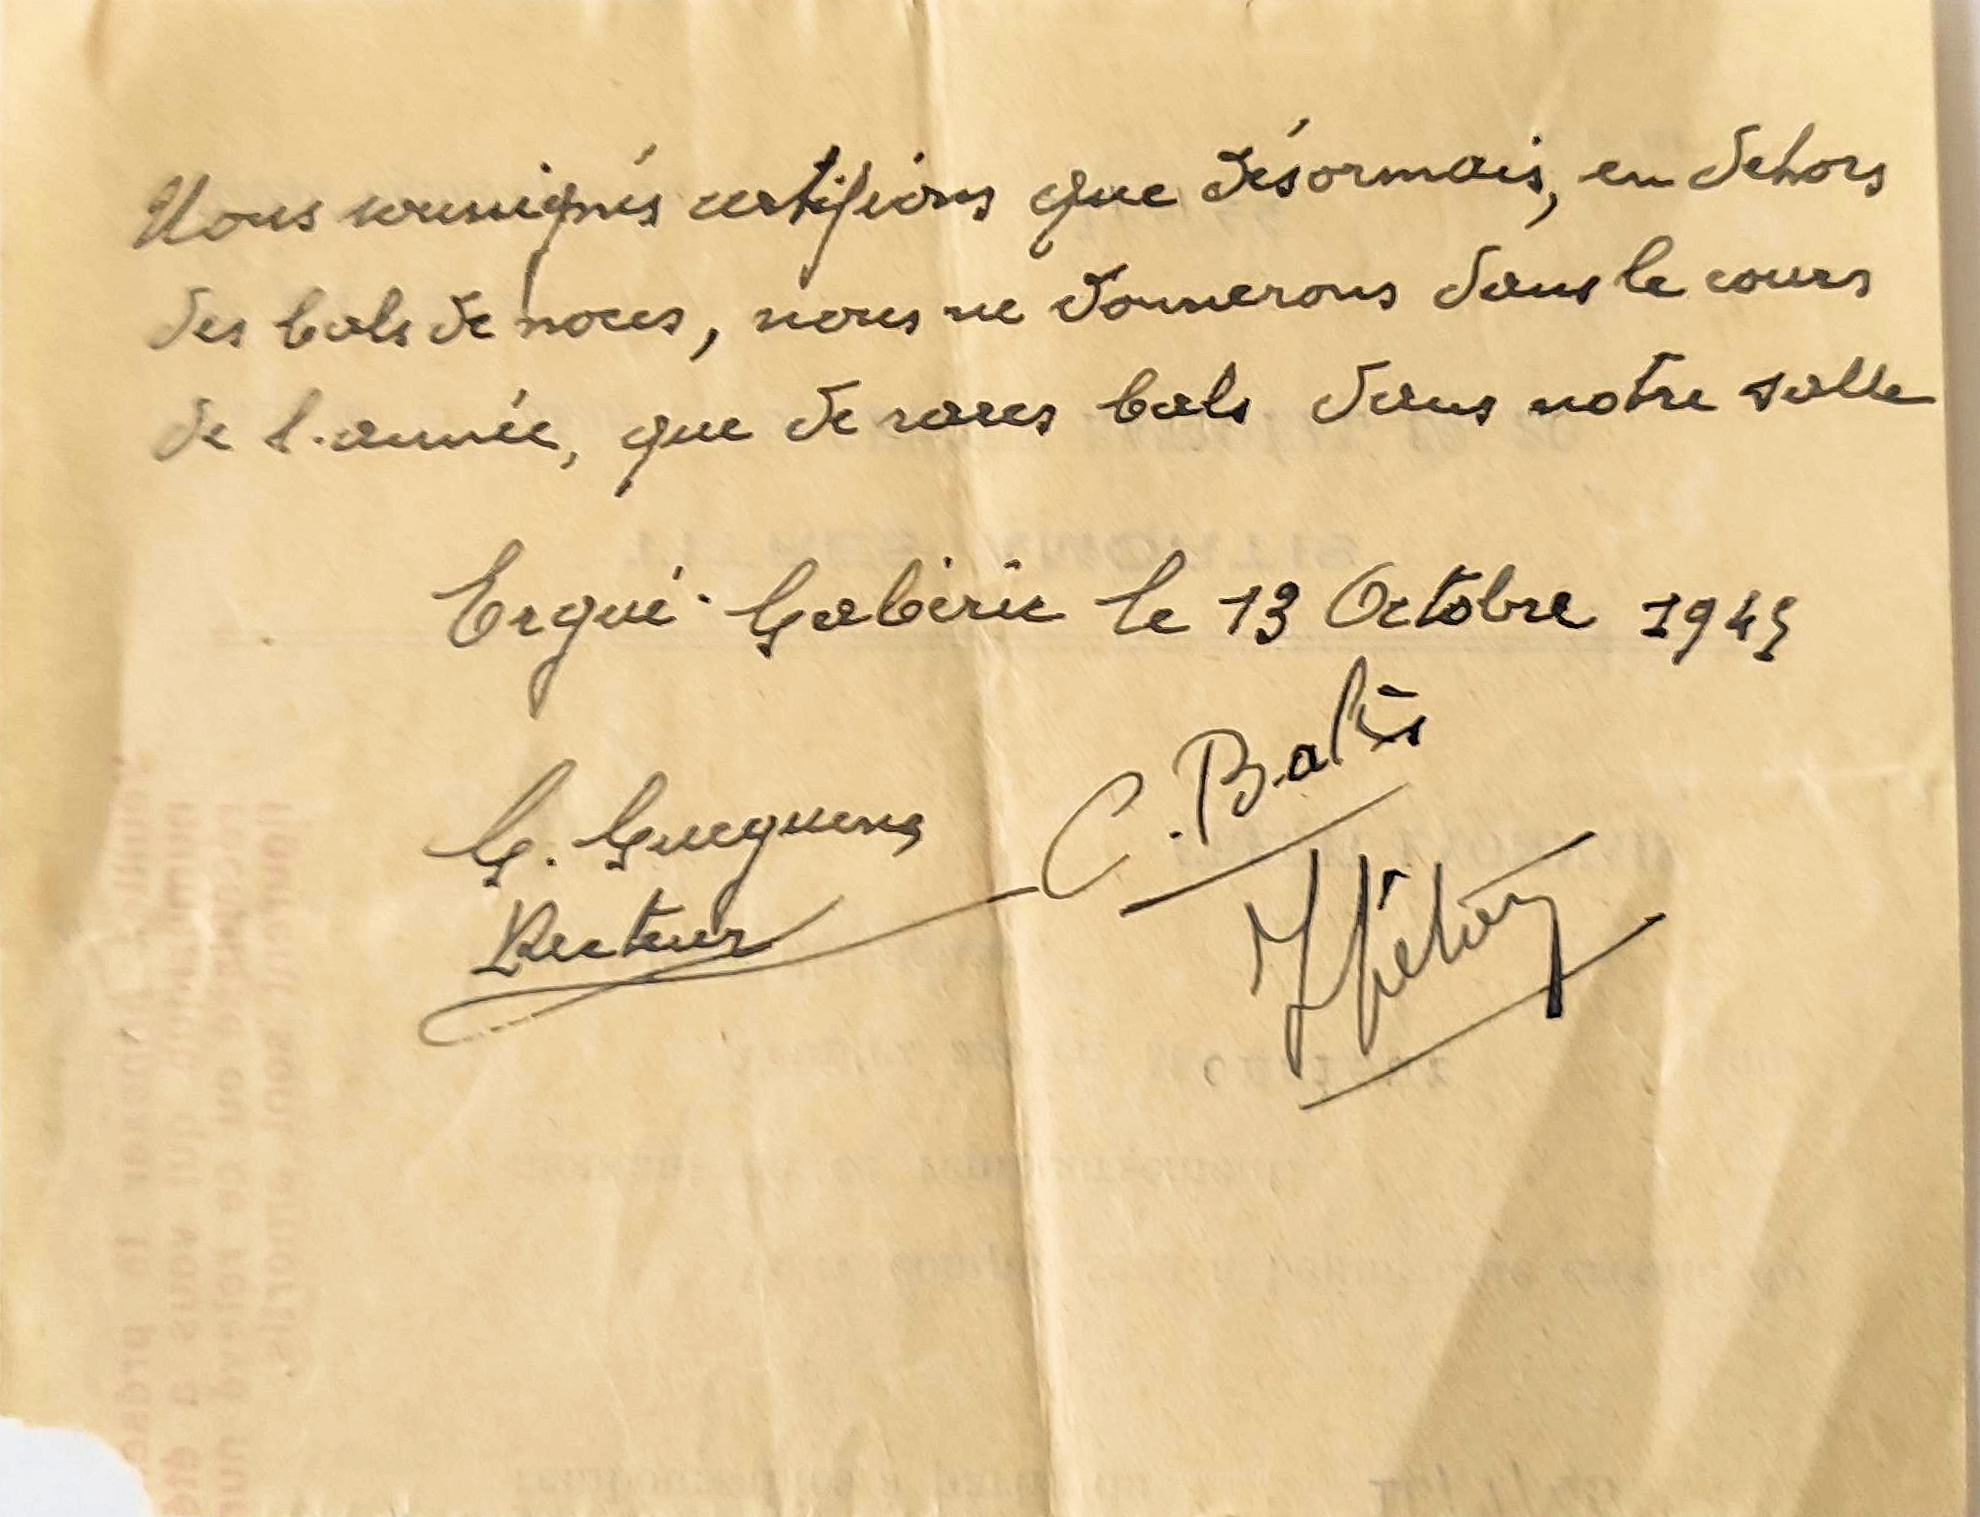 Nous soussignés certifions que désormais, en dehors
des bals de noces, nous ne donnerons dans le cours
de l'année, que de rares bals dans notre salle
Ergué-Gabéric le 13 Octobre 1945
G. Gueguen C. Balès
Recteur